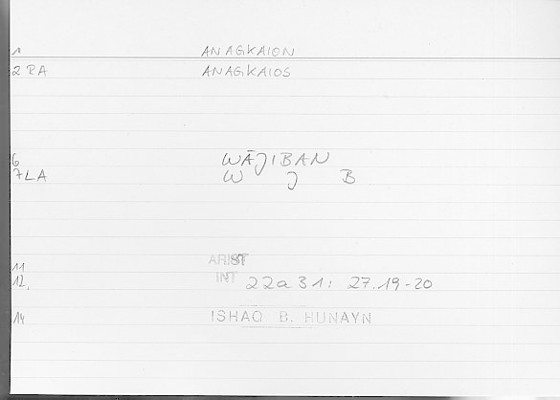 1 ANAGKAION
2 RA ANAGKAIOS
6 WĀJIBAN
7LA W J B
11 ARIST
12. INT 22a31: 27.19-20
14 ISHAQ B. HUNAYN